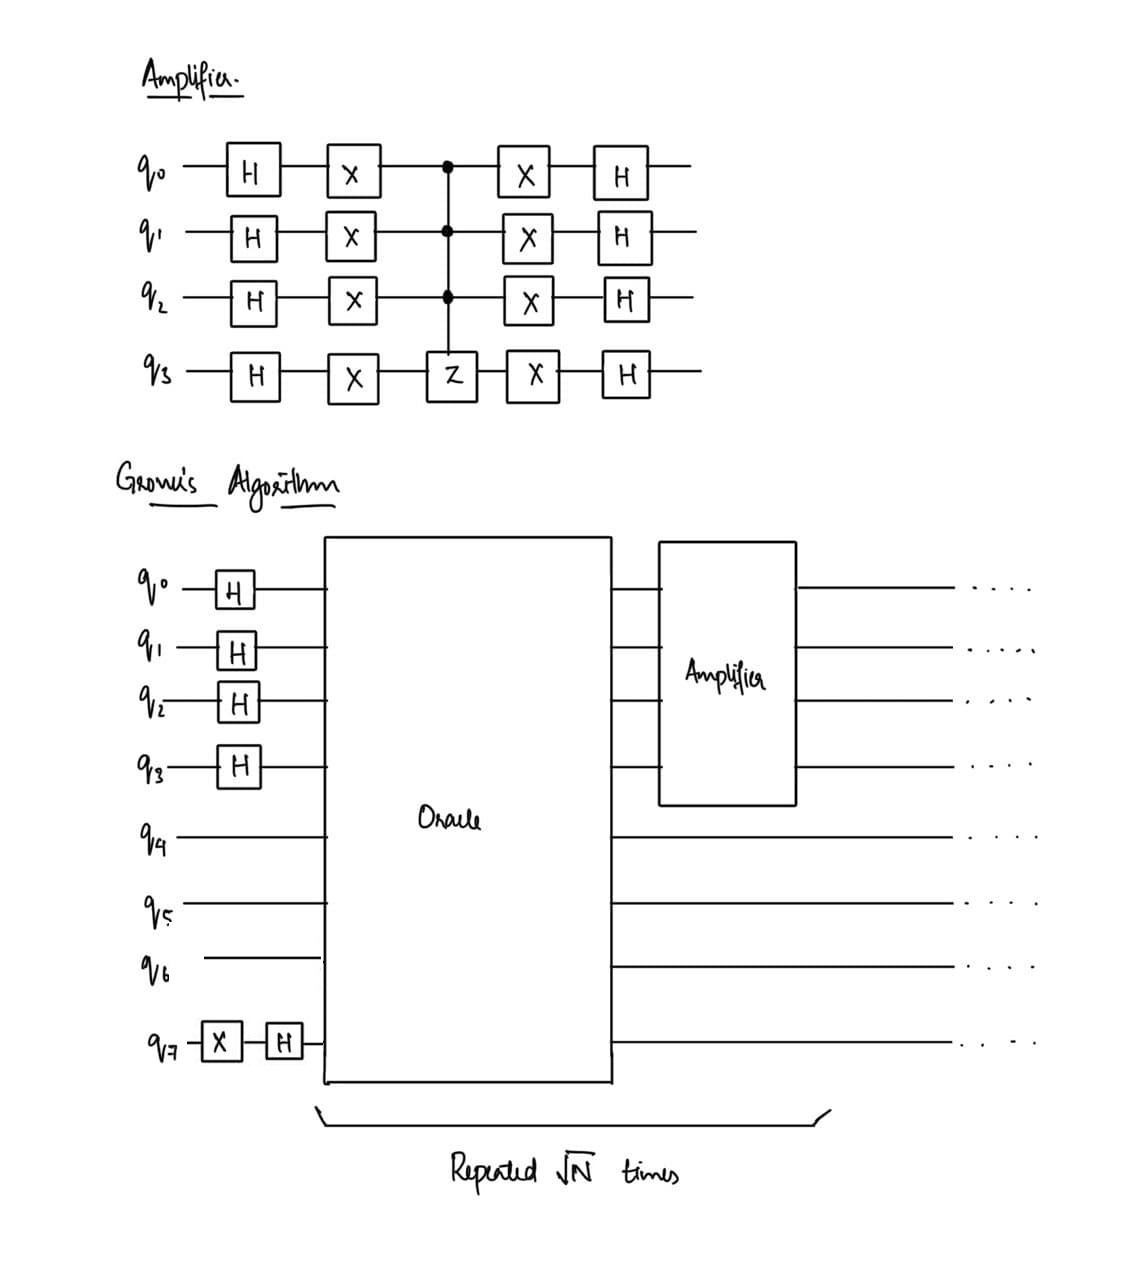 Amplifier.
q0 H X X H
q1 H X X H
q2 H X X H
q3 H X Z X H
Grover's Algorithm
q0 H
q1 H
q2 H
q3 H
Amplifier
Oracle
q4
q5
q6
q7 X H
Repeated √N times